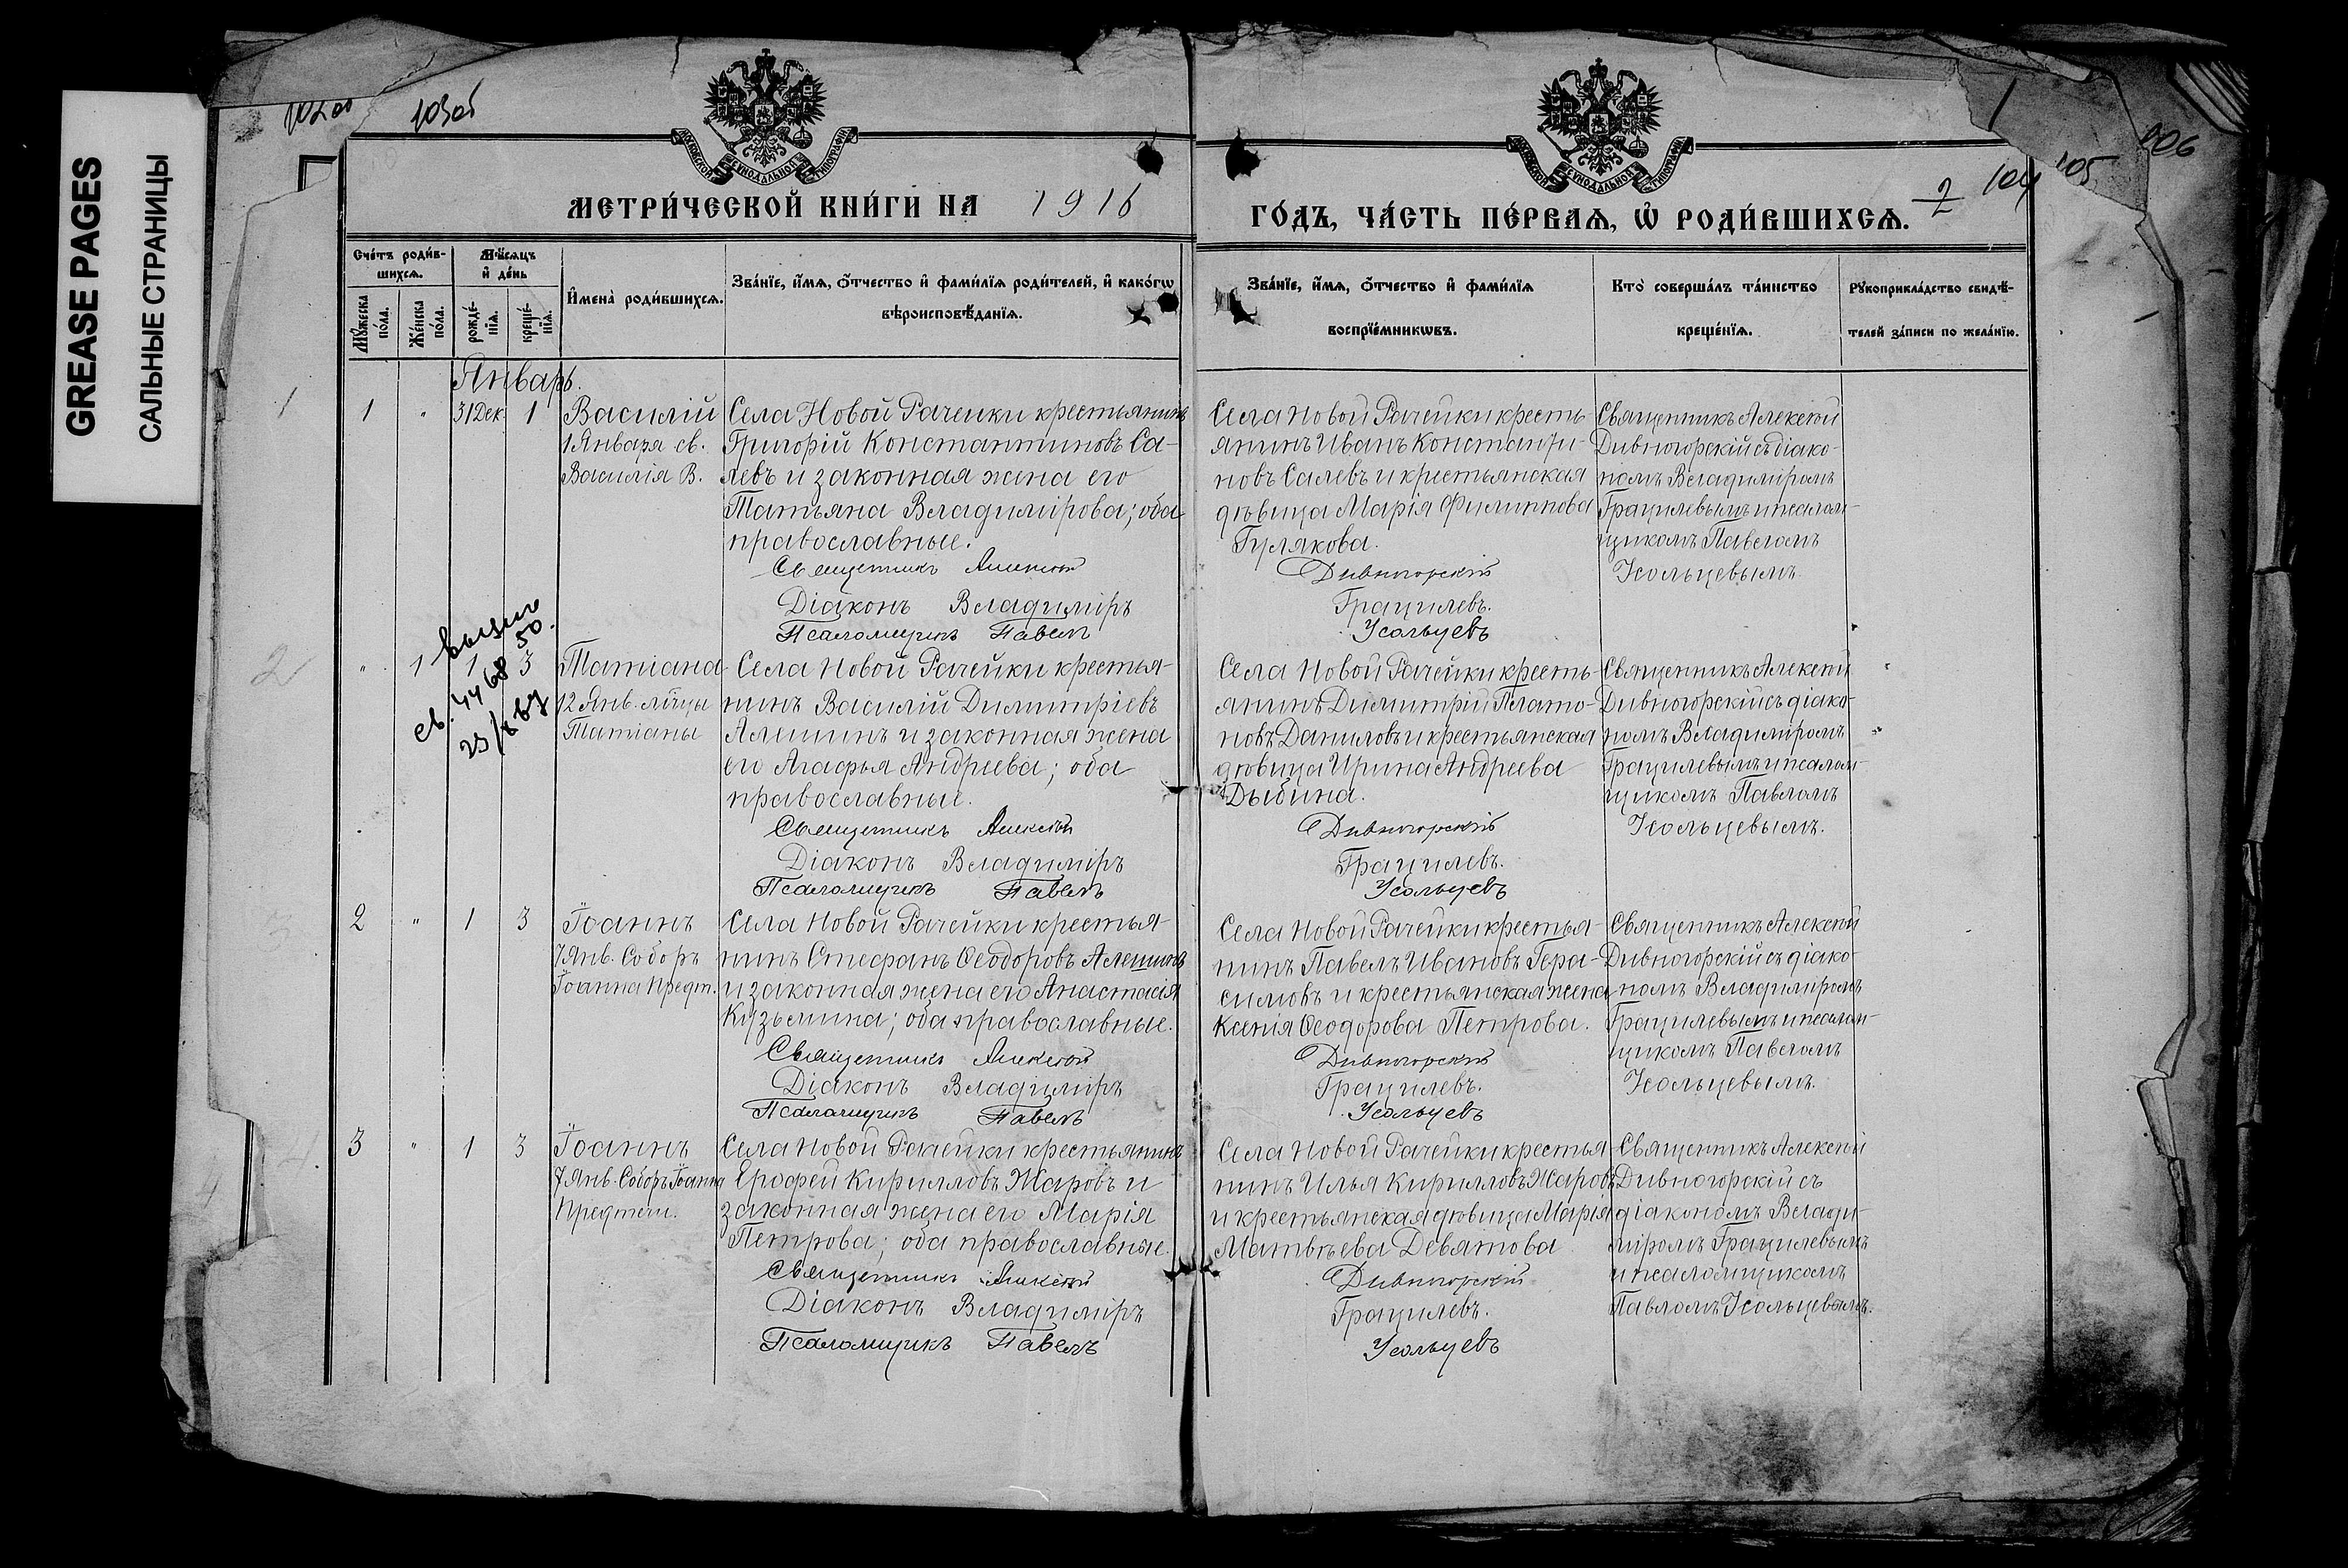 GREASE PAGES
САЛЬНЫЕ СТРАНИЦЫ
103об
1
106
105
104
2
МОСКОВСКОЙ СѴНОДАЛЬНОЙ ТИПОГРАФІИ
МОСКОВСКОЙ СѴНОДАЛЬНОЙ ТИПОГРАФІИ
МЕТРИ́ЧЕСКОЙ КНИ́ГИ НА 1916
ГО́ДЪ, ЧА́СТЬ ПЕ́РВАѦ, Ѡ҆ РОДИ́ВШИХСѦ.
Сче́тъ роди́в-
шихсѧ.
Мꙋ́жеска по́ла.
Же́нска по́ла.
Мѣ́сѧцъ
и҆ де́нь
рожде́-нїѧ.
креще́-нїѧ.
И҆мена̀ роди́вшихсѧ.
Зва́нїе, и҆́мѧ, ѻ҆́тчество и҆ фами́лїѧ роди́телей, и҆ како́гѡ
вѣроисповѣ́данїѧ.
Зва́нїе, и҆́мѧ, ѻ҆́тчество и҆ фами́лїѧ
воспрїе́мникѡвъ.
Кто̀ соверша́лъ та́инство
креще́нїѧ.
Рꙋкоприкла́дство свидѣ́-
телей за́писи по жела́нїю.
Январь.
1
1 " 31 Дек. 1
Василій
1 Января св.
Василія В.
Села Новой Рачейки крестьянинъ
Григорій Константиновъ Са-
левъ и законная жена его
Татьяна Владимірова; оба
православные.
Священникъ Алексѣй
Діаконъ Владиміръ
Псаломщикъ Павелъ
Села Новой Рачейки кресть-
янинъ Иванъ Константи-
новъ Салевъ и крестьянская
дѣвица Марія Филиппова
Гулякова.
Дивногорскій
Грацилевъ.
Усольцевъ
Священникъ Алексѣй
Дивногорскій съ діако-
номъ Владиміромъ
Грацилевымъ и псалом-
щикомъ Павломъ
Усольцевымъ.
2
" 1 1 3
50.
св. 4468
Татіана
12 Янв. м-цы
Татіаны
Села Новой Рачейки крестья-
нинъ Василій Димитріевъ
Алешинъ и законная жена
его Агафья Андреева; оба
православные.
Священникъ Алексѣй
Діаконъ Владиміръ
Псаломщикъ Павелъ
Села Новой Рачейки кресть-
янинъ Димитрій Плато-
новъ Даниловъ и крестьянская
дѣвица Ирина Андреева
Дыбина.
Дивногорскій
Грацилевъ.
Усольцевъ
Священникъ Алексѣй
Дивногорскій съ діако-
номъ Владиміромъ
Грацилевымъ и псалом-
щикомъ Павломъ
Усольцевымъ.
3
2 " 1 3
Іоаннъ
7 Янв. Соборъ
Іоанна Предт.
Села Новой Рачейки крестья-
нинъ Стефанъ Ѳеодоровъ Алешинъ
и законная жена его Анастасія
Кузьмина; оба православные.
Священникъ Алексѣй
Діаконъ Владиміръ
Псаломщикъ Павелъ
Села Новой Рачейки крестья-
нинъ Павелъ Ивановъ Гера-
симовъ и крестьянская жена
Ксенія Ѳеодорова Петрова.
Дивногорскій
Грацилевъ.
Усольцевъ
Священникъ Алексѣй
Дивногорскій съ діако-
номъ Владиміромъ
Грацилевымъ и псалом-
щикомъ Павломъ
Усольцевымъ.
4
3 " 1 3
Іоаннъ
7 Янв. Соборъ Іоанна
Предтечи.
Села Новой Рачейки крестьянинъ
Ерофей Кирилловъ Жаровъ и
законная жена его Марія
Петрова; оба православные.
Священникъ Алексѣй
Діаконъ Владиміръ
Псаломщикъ Павелъ
Села Новой Рачейки крестья-
нинъ Илья Кирилловъ Жаровъ
и крестьянская дѣвица Марія
Матвѣева Девятова
Дивногорскій
Грацилевъ.
Усольцевъ
Священникъ Алексѣй
Дивногорскій съ
діакономъ Влади-
міромъ Грацилевымъ
и псаломщикомъ
Павломъ Усольцевымъ.